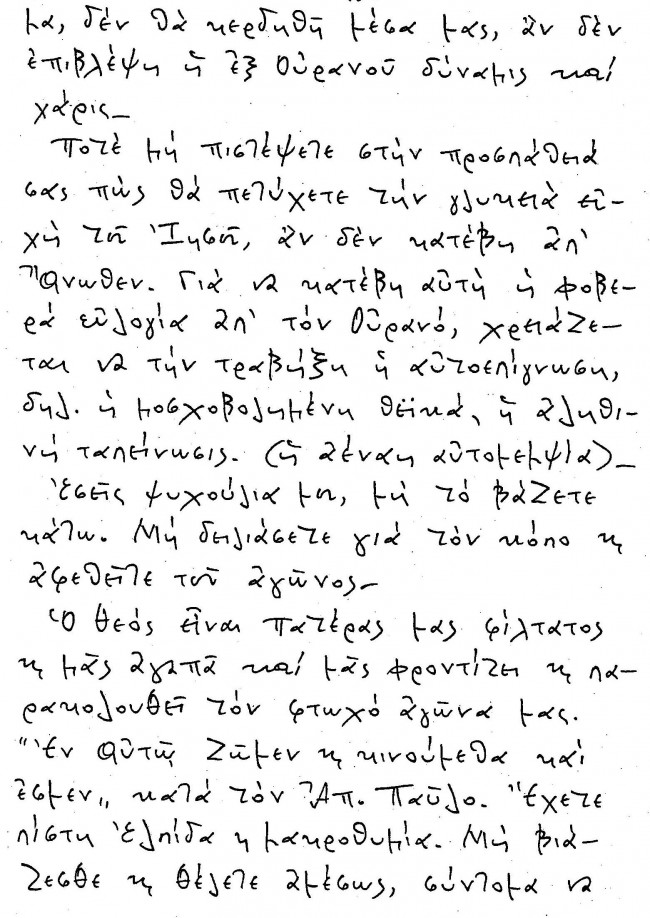 μα, δέν θά κερδηθῆ μέσα μας, ἄν δέν
ἐπιβλέψη ἡ ἐξ Οὐρανοῦ δύναμις καί
χάρις_
Ποτέ μή πιστέψετε στήν προσπάθειά
σας πώς θά πετύχετε τήν γλυκειά εὐ-
χή τοῦ Ἰησοῦ, ἄν δέν κατέβη ἀπ'
Ἄνωθεν. Γιά νά κατέβη αὐτή ἡ φοβε-
ρά εὐλογία ἀπ' τόν Οὐρανό, χρειάζε-
ται νά τήν τραβήξη ἡ αὐτοεπίγνωση,
δηλ. ἡ μοσχοβολημένη θεϊκά, ἡ ἀληθι-
νή ταπείνωσις. (ἡ ἀέναη αὐτομεμψία)_
Ἐσεῖς ψυχούλια μου, μή τό βάζετε
κάτω. Μή δειλιάσετε γιά τόν κόπο κ
ἀφεθεῖτε τοῦ ἀγῶνος_
Ὁ Θεός εἶναι πατέρας μας φίλτατος
κ μᾶς ἀγαπᾶ καί μᾶς φροντίζει κ πα-
ρακολουθεῖ τόν φτωχό ἀγῶνα μας.
"Ἐν αὐτῷ ζῶμεν κ κινούμεθα καί
ἐσμεν,, κατά τόν Ἀπ. Παῦλο. Ἔχετε
πίστη ἐλπίδα κ μακροθυμία. Μή βιά-
ζεσθε κ θέλετε ἀμέσως, σύντομα νά